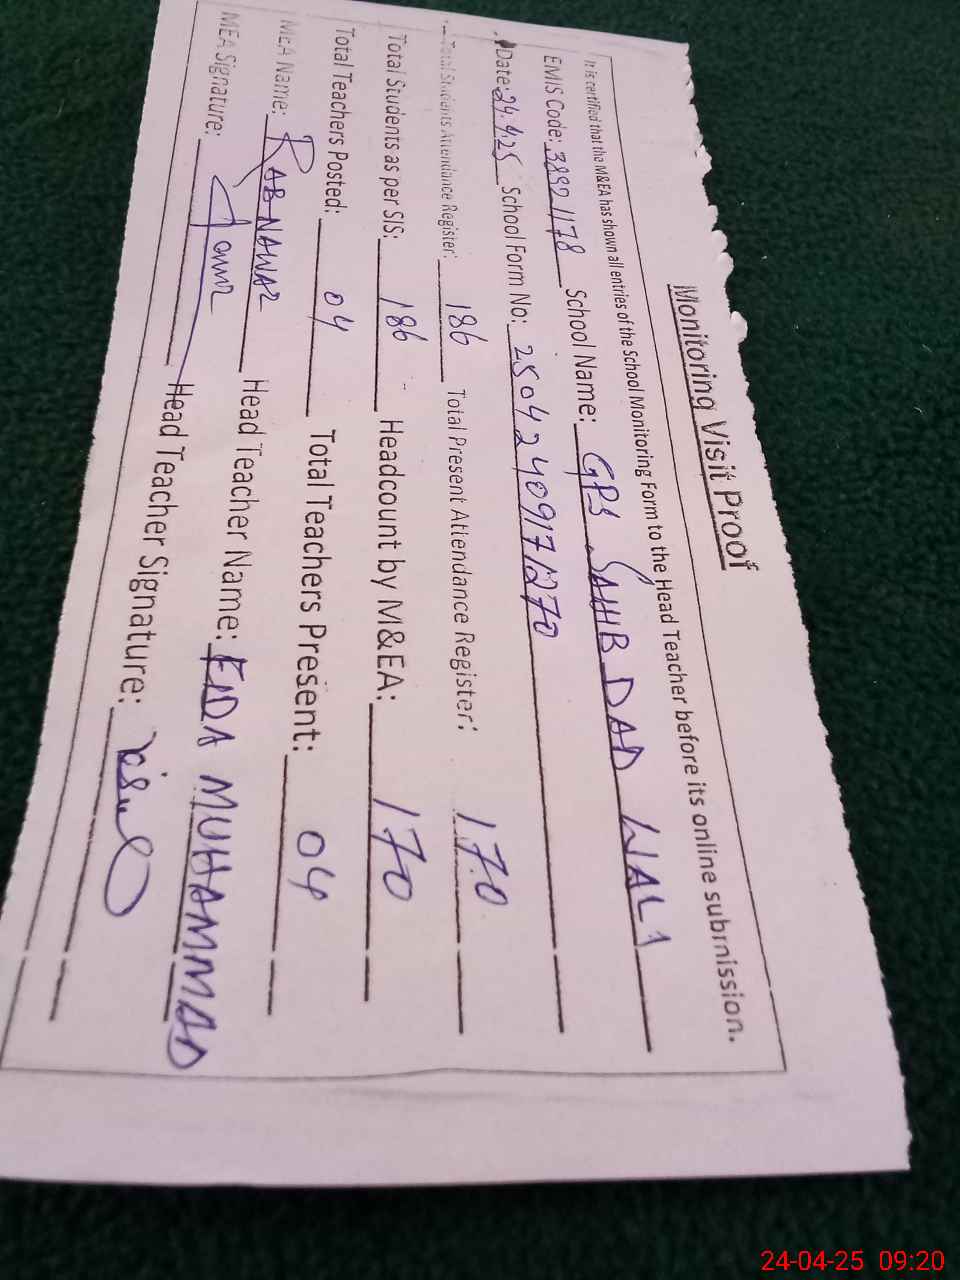 Monitoring Visit Proof
It is certified that the M&EA has shown all entries of the School Monitoring Form to the Head Teacher before its online submission.
EMIS Code: 38921178 School Name: GPS SAHIB DAD WALI
Date: 24.4.25 School Form No: 25042409171270
Total Students Attendance Register: 186 Total Present Attendance Register: 170
Total Students as per SIS: 186 Headcount by M&EA: 170
Total Teachers Posted: 04 Total Teachers Present: 04
MEA Name: RAB NAWAZ Head Teacher Name: FIDA MUHAMMAD
MEA Signature: Head Teacher Signature:
24-04-25 09:20